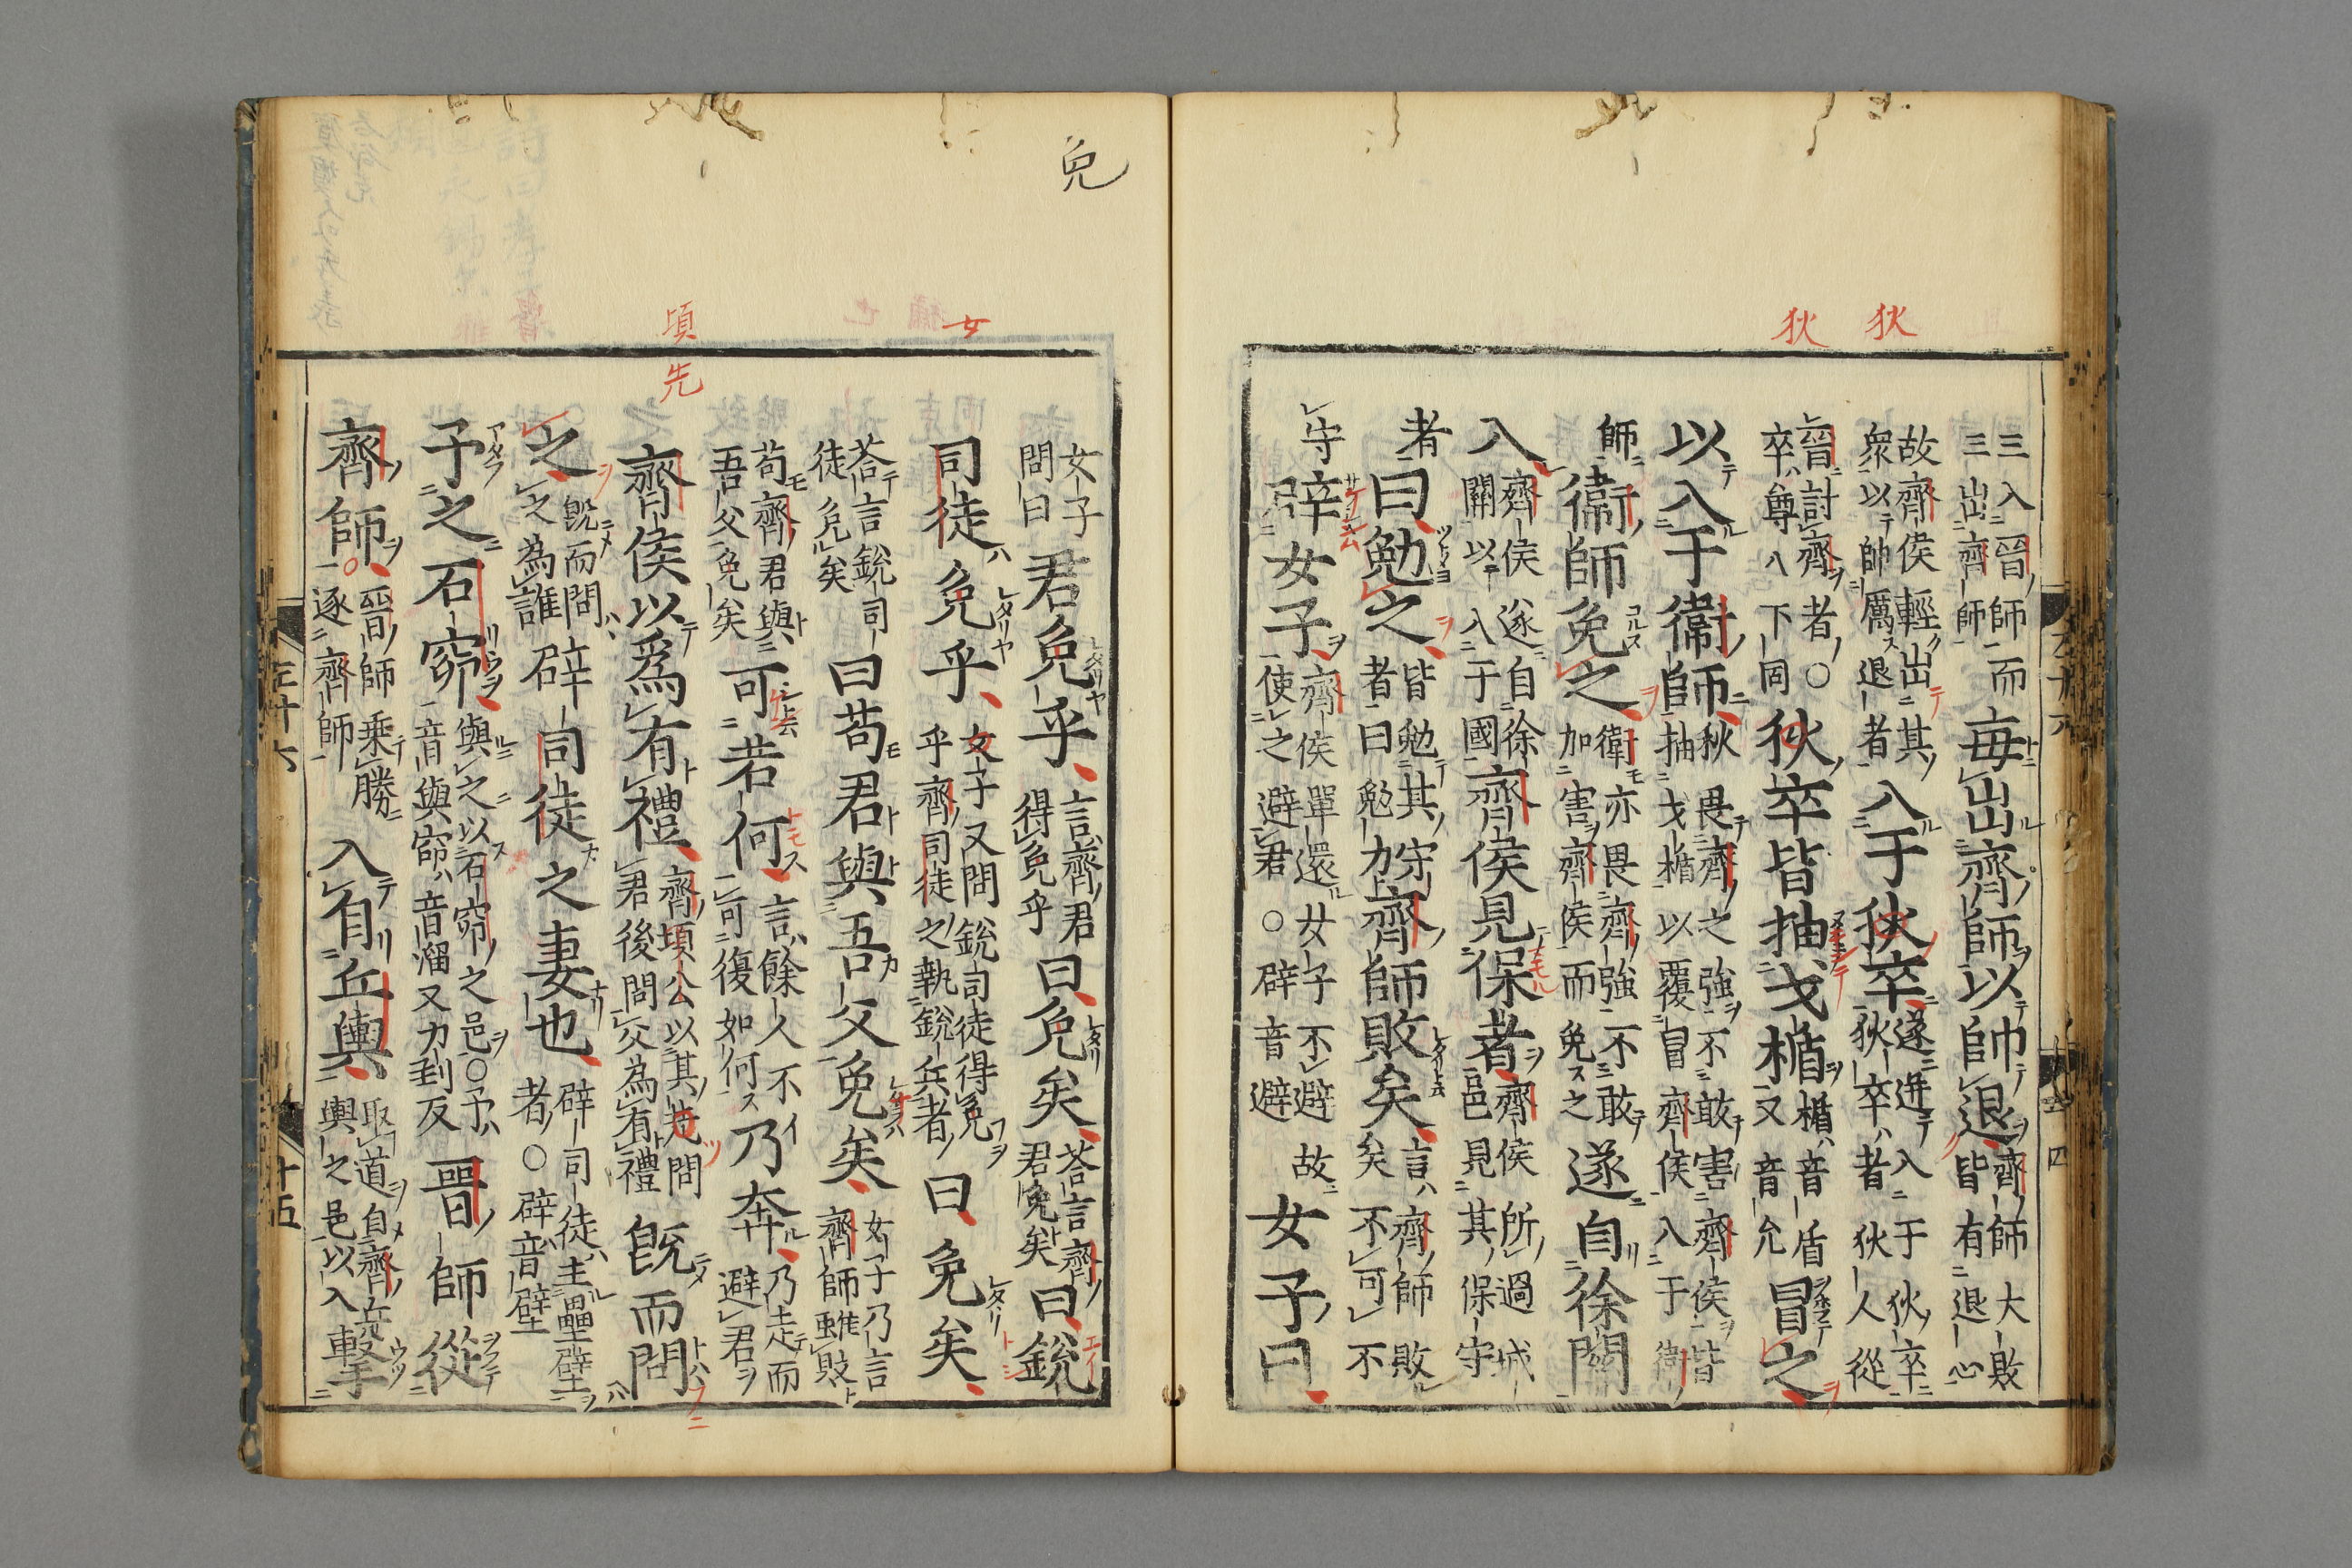 狄
狄
三入晉師而
三出齊師
每出齊師以帥退
齊師大敗
皆有退心
故齊侯輕出其
衆以帥厲退者
入于狄卒
遂迸入于狄卒
狄卒者狄人從
晉討齊者○
卒尊入下同
狄卒皆抽戈楯
楯音盾
又音允
冒之
以入于衛師
狄畏齊之強不敢害齊侯皆
抽戈楯以覆冒齊侯入于衛
師
衛師免之
衛亦畏齊強不敢
加害齊侯而免之
遂自徐關
入
齊侯遂自徐
關以入于國
齊侯見保者
齊侯所過城
邑見其保守
者
曰勉之
皆勉其守
者曰勉力
齊師敗矣
言齊師敗
矣不可不
守
辟女子
齊侯單還女子不避故
使之避君○辟音避
女子曰
免
女
頃
先
女子
問曰
君免乎
言齊君
得免乎
曰免矣
荅言齊
君免矣
曰銳
司徒免乎
女子又問銳司徒得免
乎齊司徒之執銳兵者
曰免矣
荅言銳司
徒免矣
曰苟君與吾父免矣
女子乃言
齊師雖敗
苟齊君與
吾父免矣
可若何
言餘人不
可復如何
乃奔
乃走而
避君
齊侯以爲有禮
齊頃公以其先問
君後問父為有禮
旣而問
之
旣而問
之為誰
辟司徒之妻也
辟司徒主壘壁
者○辟音壁
子之石窌
與之以石窌之邑○予
音與窌音溜又力到反
晉師從
齊師
晉師乗勝
逐齊師
入自丘輿
取道自齊
輿之邑以入
擊
三十六
十五